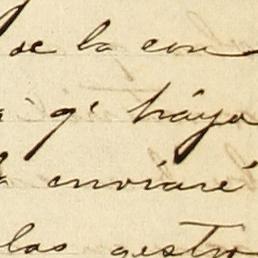 de la con
a q.e haya
a enviaré
las gestio